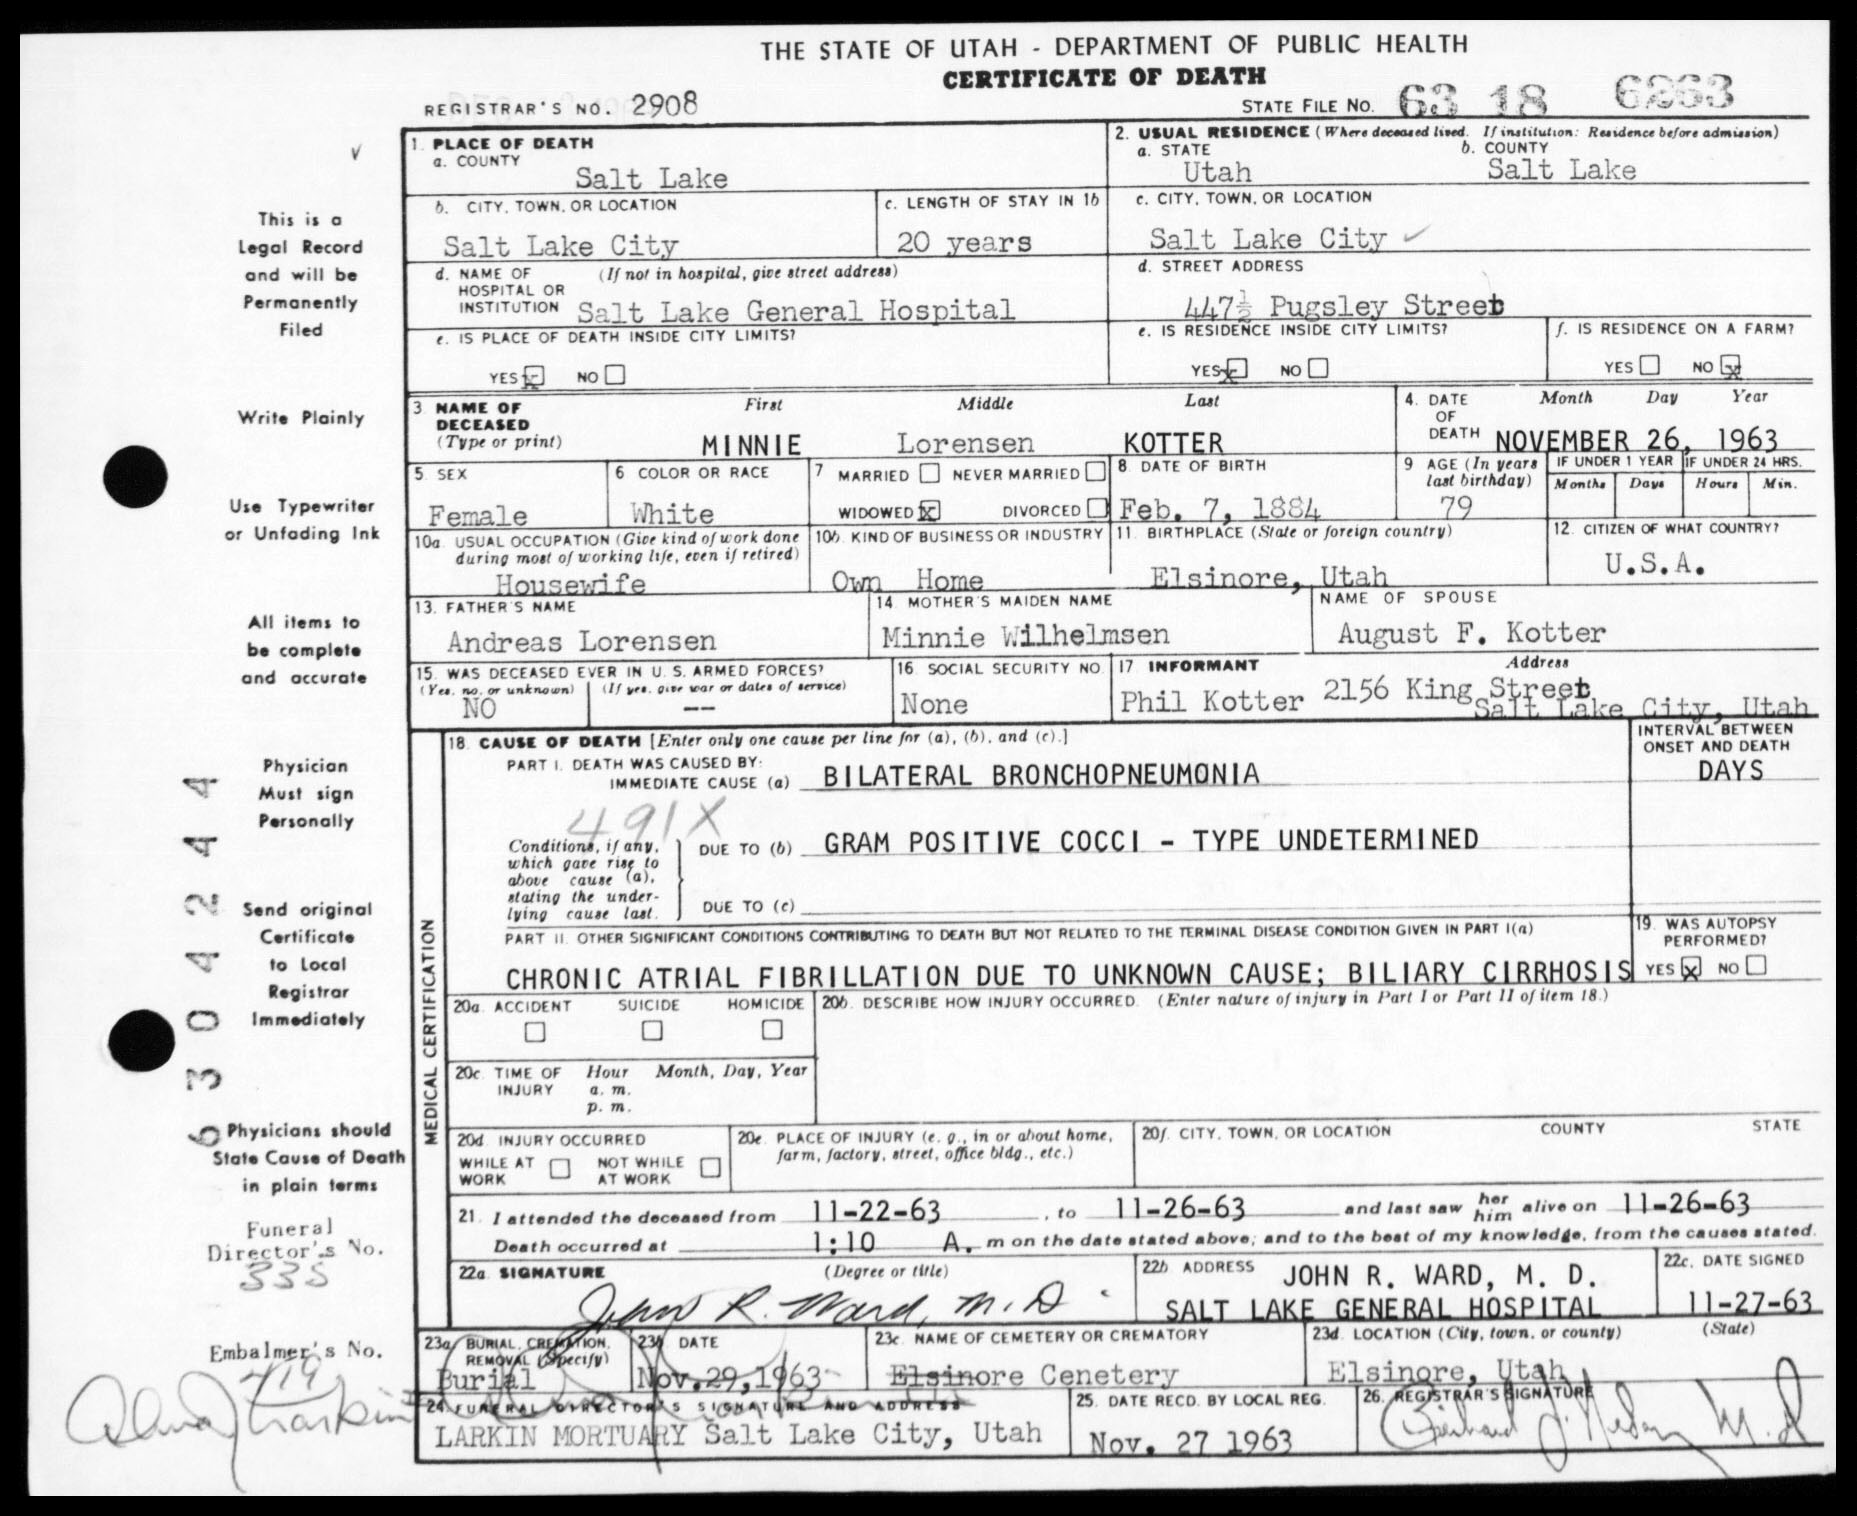 THE STATE OF UTAH - DEPARTMENT OF PUBLIC HEALTH
CERTIFICATE OF DEATH
REGISTRAR'S NO. 2908
STATE FILE NO. 63 18 6263
1. PLACE OF DEATH
a. COUNTY
Salt Lake
2. USUAL RESIDENCE (Where deceased lived. If institution: Residence before admission)
a. STATE
Utah
b. COUNTY
Salt Lake
b. CITY, TOWN, OR LOCATION
Salt Lake City
c. LENGTH OF STAY IN 1b
20 years
c. CITY, TOWN, OR LOCATION
Salt Lake City
d. NAME OF (If not in hospital, give street address)
HOSPITAL OR
INSTITUTION Salt Lake General Hospital
d. STREET ADDRESS
447½ Pugsley Street
e. IS PLACE OF DEATH INSIDE CITY LIMITS?
YES X NO
e. IS RESIDENCE INSIDE CITY LIMITS?
YES X NO
f. IS RESIDENCE ON A FARM?
YES NO X
3. NAME OF
DECEASED
(Type or print)
First Middle Last
MINNIE Lorensen KOTTER
4. DATE
OF
DEATH
Month Day Year
NOVEMBER 26, 1963
5. SEX
Female
6 COLOR OR RACE
White
7 MARRIED NEVER MARRIED
WIDOWED X DIVORCED
8. DATE OF BIRTH
Feb. 7, 1884
9 AGE (In years
last birthday)
79
IF UNDER 1 YEAR
Months Days
IF UNDER 24 HRS.
Hours Min.
10a. USUAL OCCUPATION (Give kind of work done
during most of working life, even if retired)
Housewife
10b. KIND OF BUSINESS OR INDUSTRY
Own Home
11. BIRTHPLACE (State or foreign country)
Elsinore, Utah
12. CITIZEN OF WHAT COUNTRY?
U.S.A.
13. FATHER'S NAME
Andreas Lorensen
14. MOTHER'S MAIDEN NAME
Minnie Wilhelmsen
NAME OF SPOUSE
August F. Kotter
15. WAS DECEASED EVER IN U. S. ARMED FORCES?
(Yes, no, or unknown) (If yes, give war or dates of service)
NO --
16. SOCIAL SECURITY NO.
None
17 INFORMANT Address
Phil Kotter 2156 King Street
Salt Lake City, Utah
MEDICAL CERTIFICATION
18. CAUSE OF DEATH [Enter only one cause per line for (a), (b), and (c).]
PART I. DEATH WAS CAUSED BY:
IMMEDIATE CAUSE (a) BILATERAL BRONCHOPNEUMONIA
INTERVAL BETWEEN
ONSET AND DEATH
DAYS
491X
Conditions, if any,
which gave rise to
above cause (a),
stating the under-
lying cause last.
DUE TO (b) GRAM POSITIVE COCCI - TYPE UNDETERMINED
DUE TO (c)
PART II. OTHER SIGNIFICANT CONDITIONS CONTRIBUTING TO DEATH BUT NOT RELATED TO THE TERMINAL DISEASE CONDITION GIVEN IN PART I(a)
CHRONIC ATRIAL FIBRILLATION DUE TO UNKNOWN CAUSE; BILIARY CIRRHOSIS
19. WAS AUTOPSY
PERFORMED?
YES X NO
20a. ACCIDENT SUICIDE HOMICIDE
20b. DESCRIBE HOW INJURY OCCURRED. (Enter nature of injury in Part I or Part II of item 18.)
20c. TIME OF
INJURY
Hour Month, Day, Year
a. m.
p. m.
20d. INJURY OCCURRED
WHILE AT
WORK
NOT WHILE
AT WORK
20e. PLACE OF INJURY (e. g., in or about home,
farm, factory, street, office bldg., etc.)
20f. CITY, TOWN, OR LOCATION COUNTY STATE
21. I attended the deceased from 11-22-63, to 11-26-63 and last saw her him alive on 11-26-63
Death occurred at 1:10 A. m on the date stated above; and to the best of my knowledge, from the causes stated.
22a. SIGNATURE (Degree or title)
John R. Ward, M.D.
22b. ADDRESS JOHN R. WARD, M. D.
SALT LAKE GENERAL HOSPITAL
22c. DATE SIGNED
11-27-63
23a. BURIAL, CREMATION,
REMOVAL (Specify)
Burial
23b. DATE
Nov.29,1963
23c. NAME OF CEMETERY OR CREMATORY
Elsinore Cenetery
23d. LOCATION (City, town, or county) (State)
Elsinore, Utah
24. FUNERAL DIRECTOR'S SIGNATURE AND ADDRESS
LARKIN MORTUARY Salt Lake City, Utah
25. DATE RECD. BY LOCAL REG.
Nov. 27 1963
26. REGISTRAR'S SIGNATURE
M.D
This is a
Legal Record
and will be
Permanently
Filed
Write Plainly
Use Typewriter
or Unfading Ink
All items to
be complete
and accurate
Physician
Must sign
Personally
Send original
Certificate
to Local
Registrar
Immediately
Physicians should
State Cause of Death
in plain terms
Funeral
Director's No.
335
Embalmer's No.
419
6 3 0 4 2 4 4